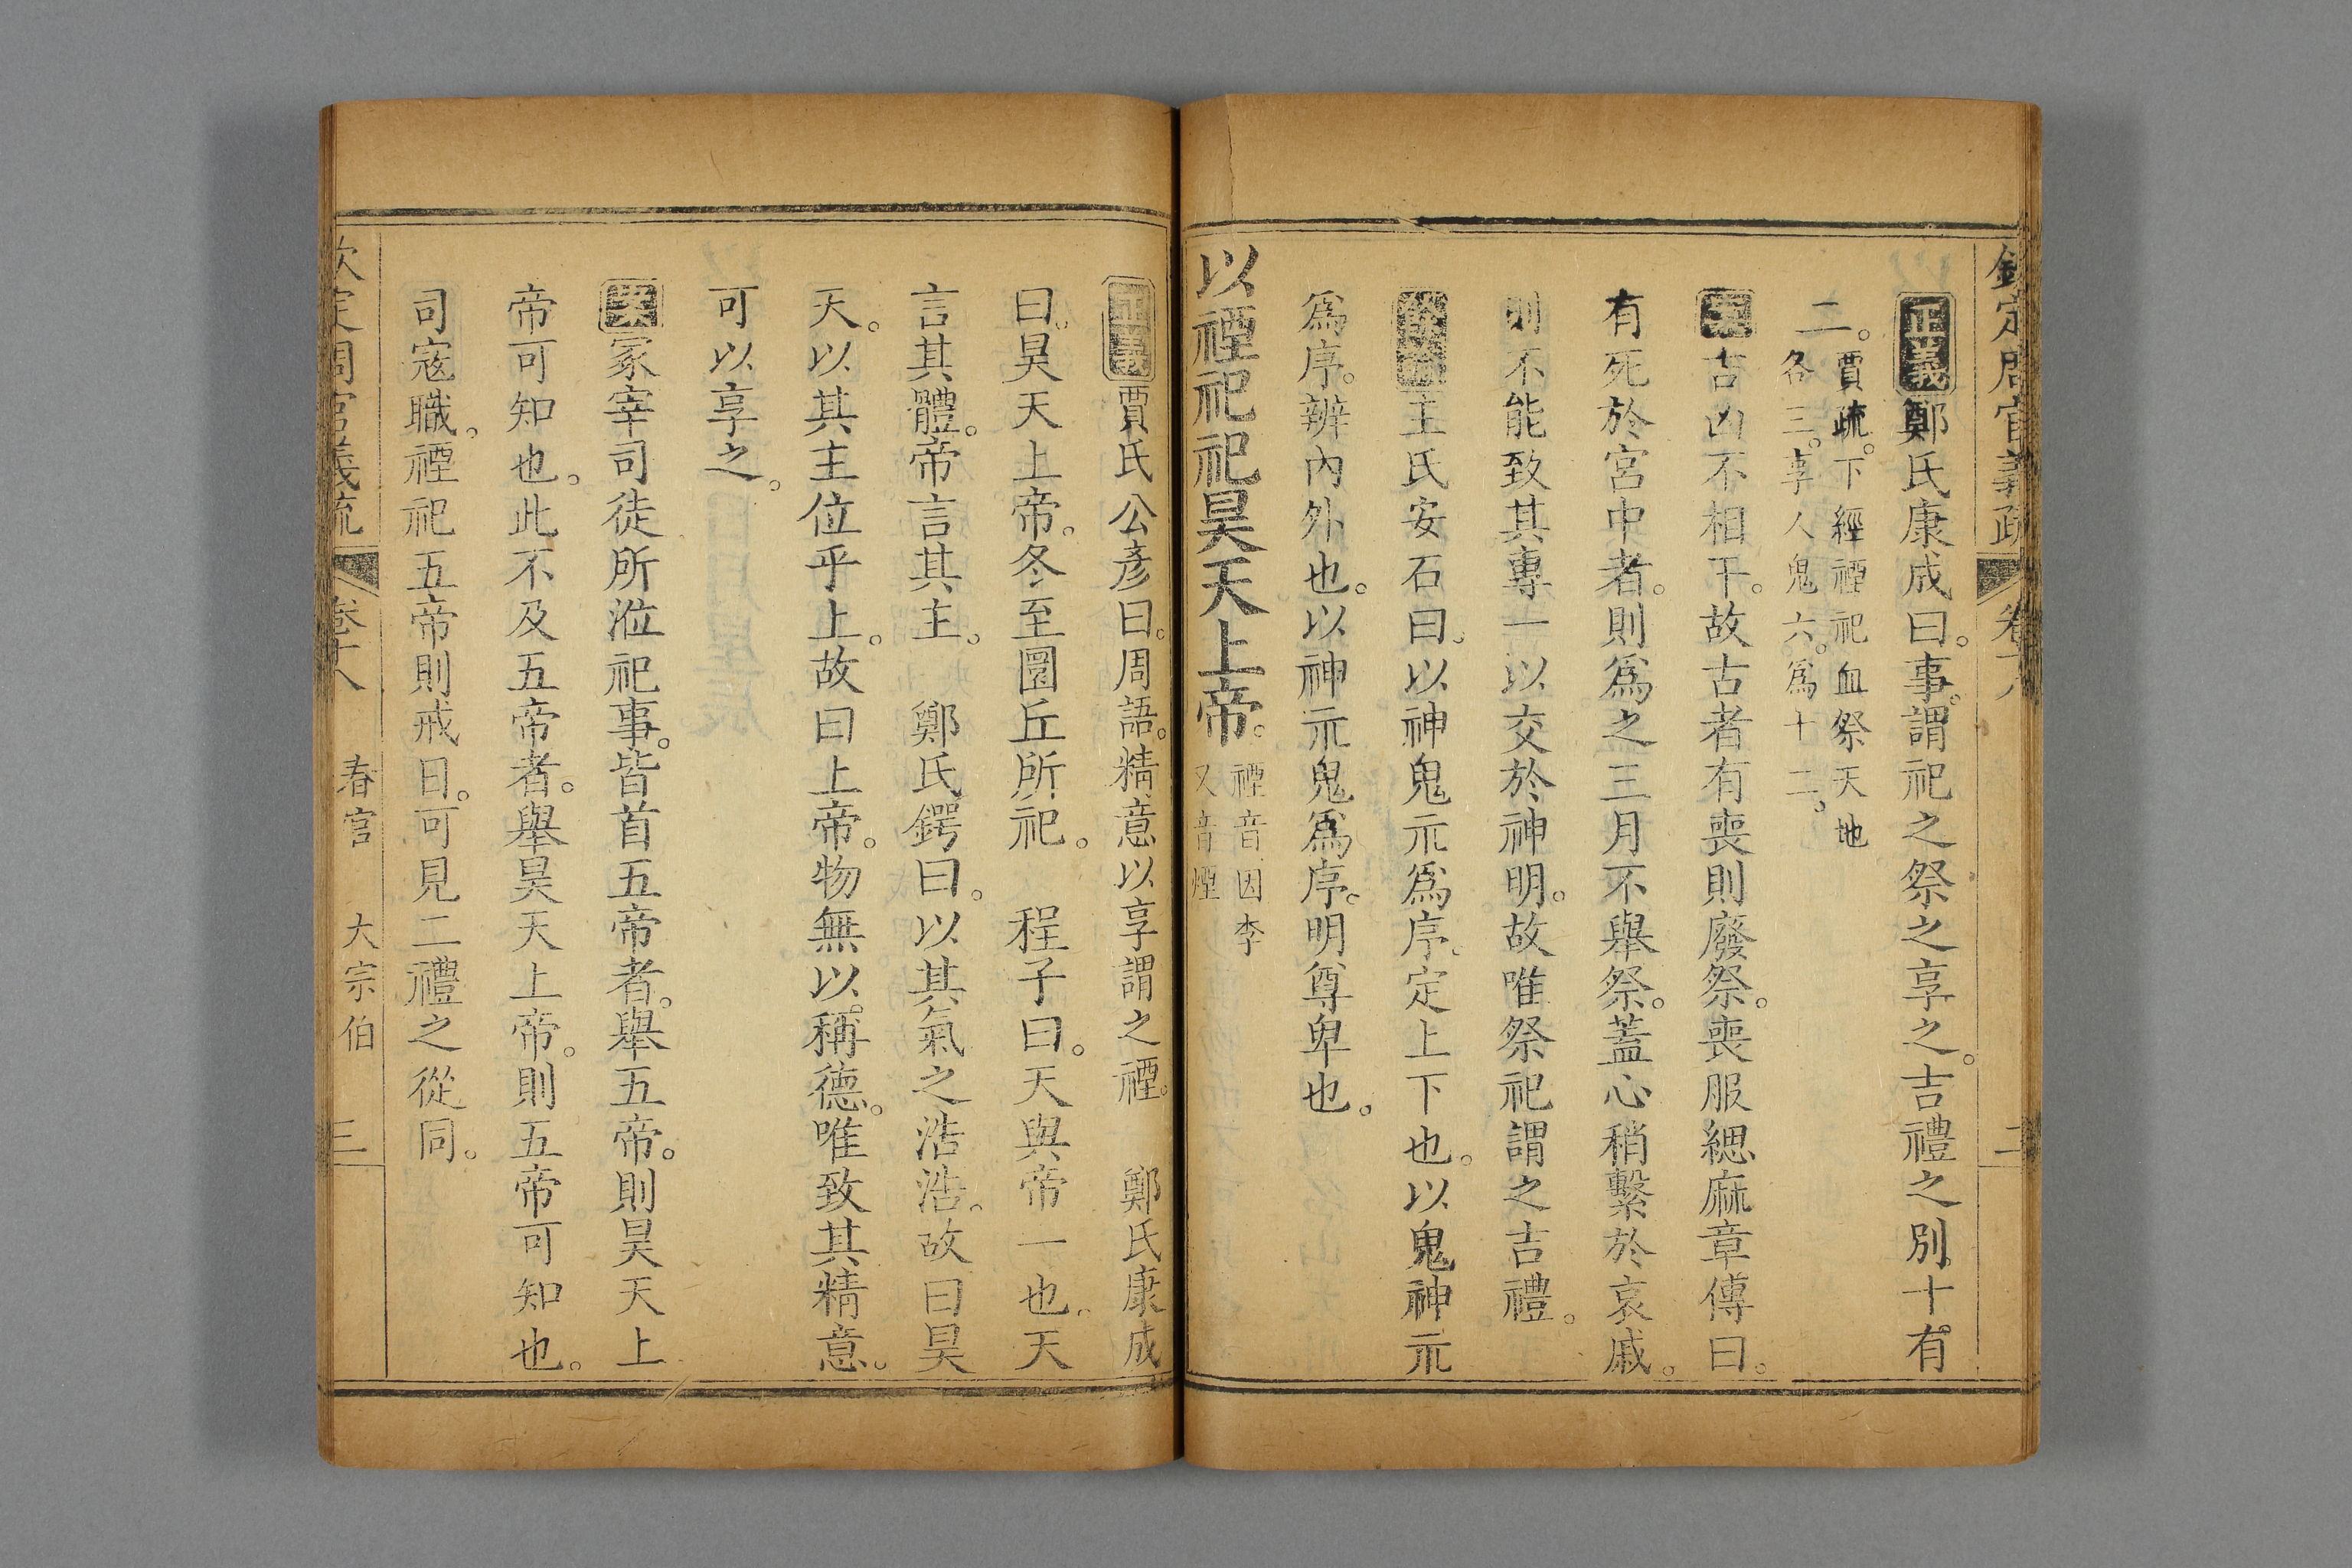 欽定周官義疏 卷十八 二
正義鄭氏康成曰。事。謂祀之祭之享之。吉禮之別。十有
二。賈疏。下經禋祀血祭天地
各三。享人鬼六。爲十二。
案吉凶不相干。故古者有喪則廢祭。喪服緦麻章傳曰。
有死於宮中者。則爲之三月不舉祭。蓋心稍繫於哀戚。
則不能致其專一以交於神明。故唯祭祀謂之吉禮。
王氏安石曰。以神鬼示爲序。定上下也。以鬼神示
爲序。辨內外也。以神示鬼爲序。明尊卑也。
以禋祀祀昊天上帝。禋音因李
又音煙
正義賈氏公彥曰。周語。精意以享謂之禋。 鄭氏康成
曰。昊天上帝。冬至圜丘所祀。 程子曰。天與帝一也。天
言其體。帝言其主。 鄭氏鍔曰。以其氣之浩浩。故曰昊
天。以其主位乎上。故曰上帝。物無以。稱德。唯致其精意。
可以享之。
案冢宰司徒所涖祀事。皆首五帝者。舉五帝。則昊天上
帝可知也。此不及五帝者。舉昊天上帝。則五帝可知也。
司寇職。禋祀五帝則戒日。可見二禮之從同。
欽定周官義疏 卷十八 春官 大宗伯 三